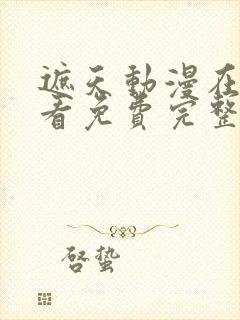 遮天動漫在
看免費完整
啓蟄